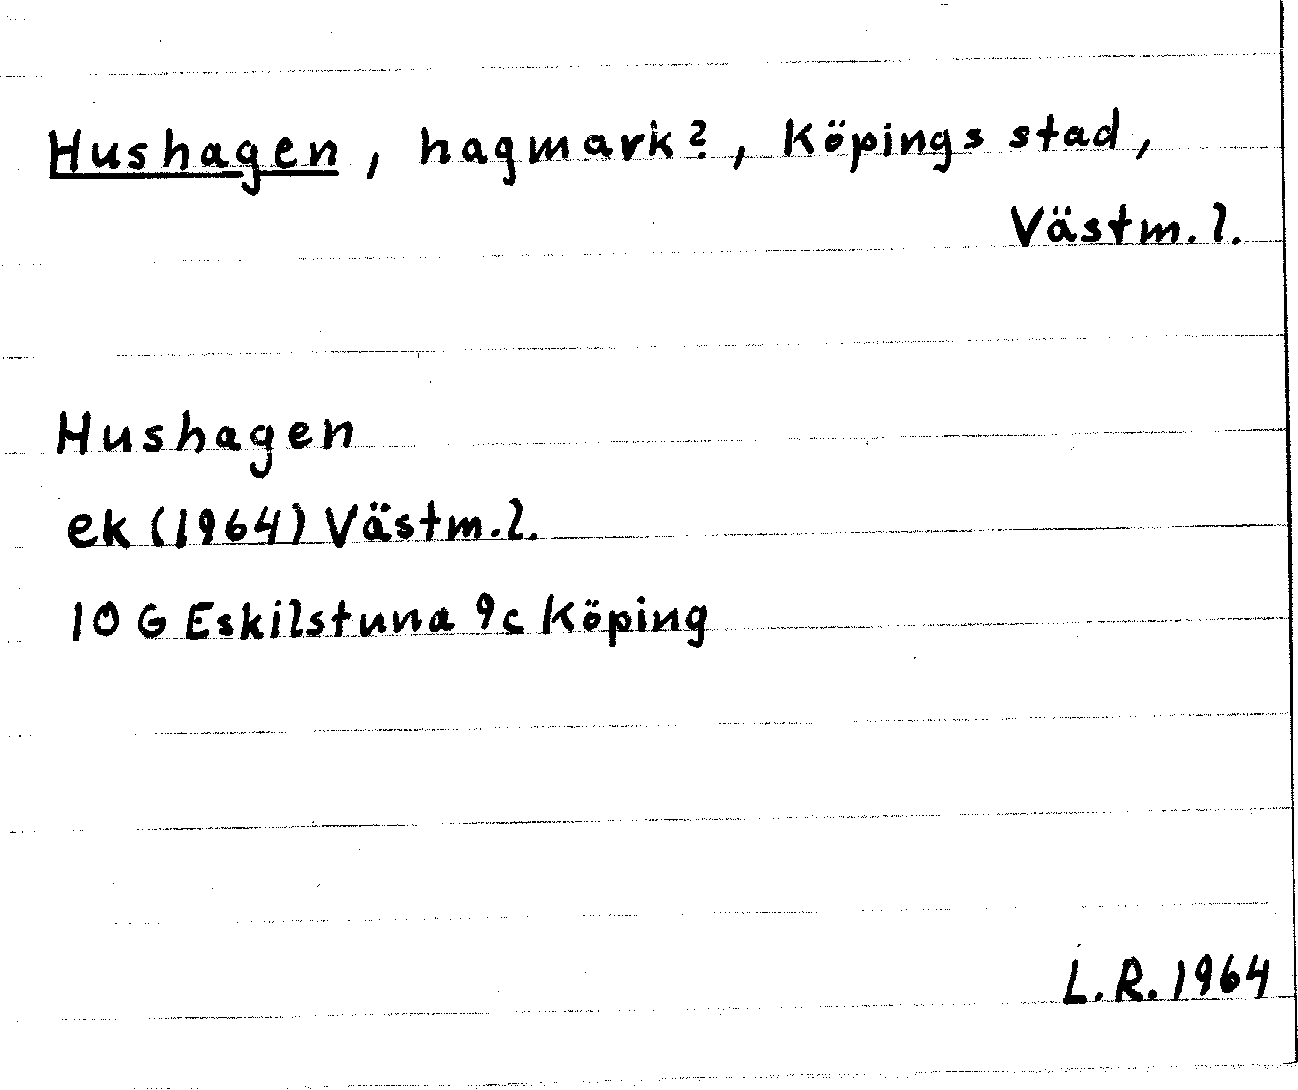 Hushagen, hagmark?, Köpings stad,
Västm. l.
Hushagen
ek (1964) Västm.l.
10 G Eskilstuna 9c Köping
L.R. 1964